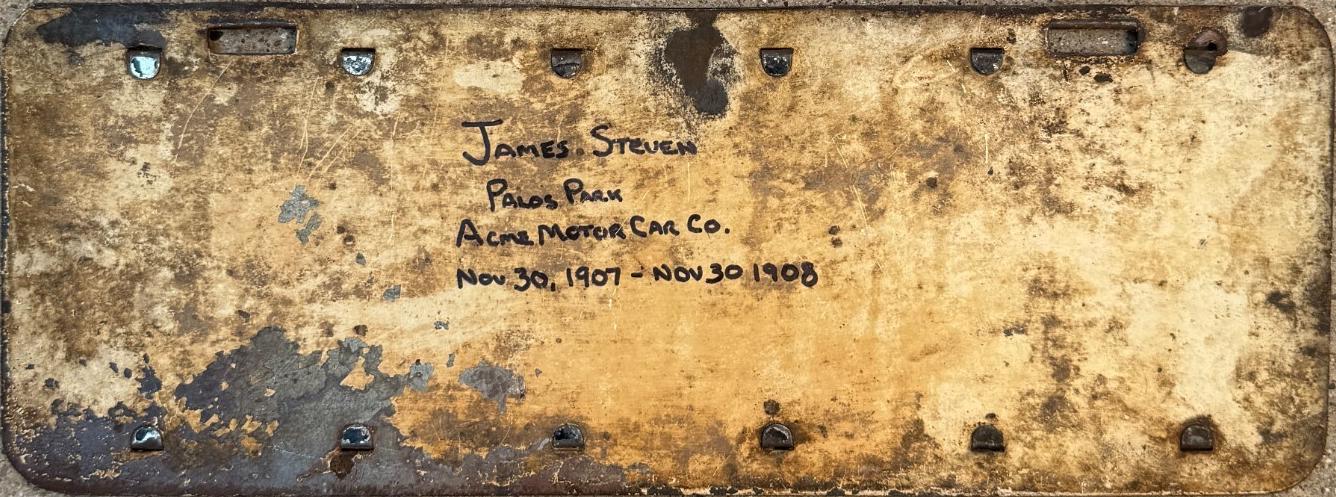 JAMES. STEVEN
PALOS PARK
ACME MOTOR CAR CO.
NOV 30, 1907 - NOV 30 1908